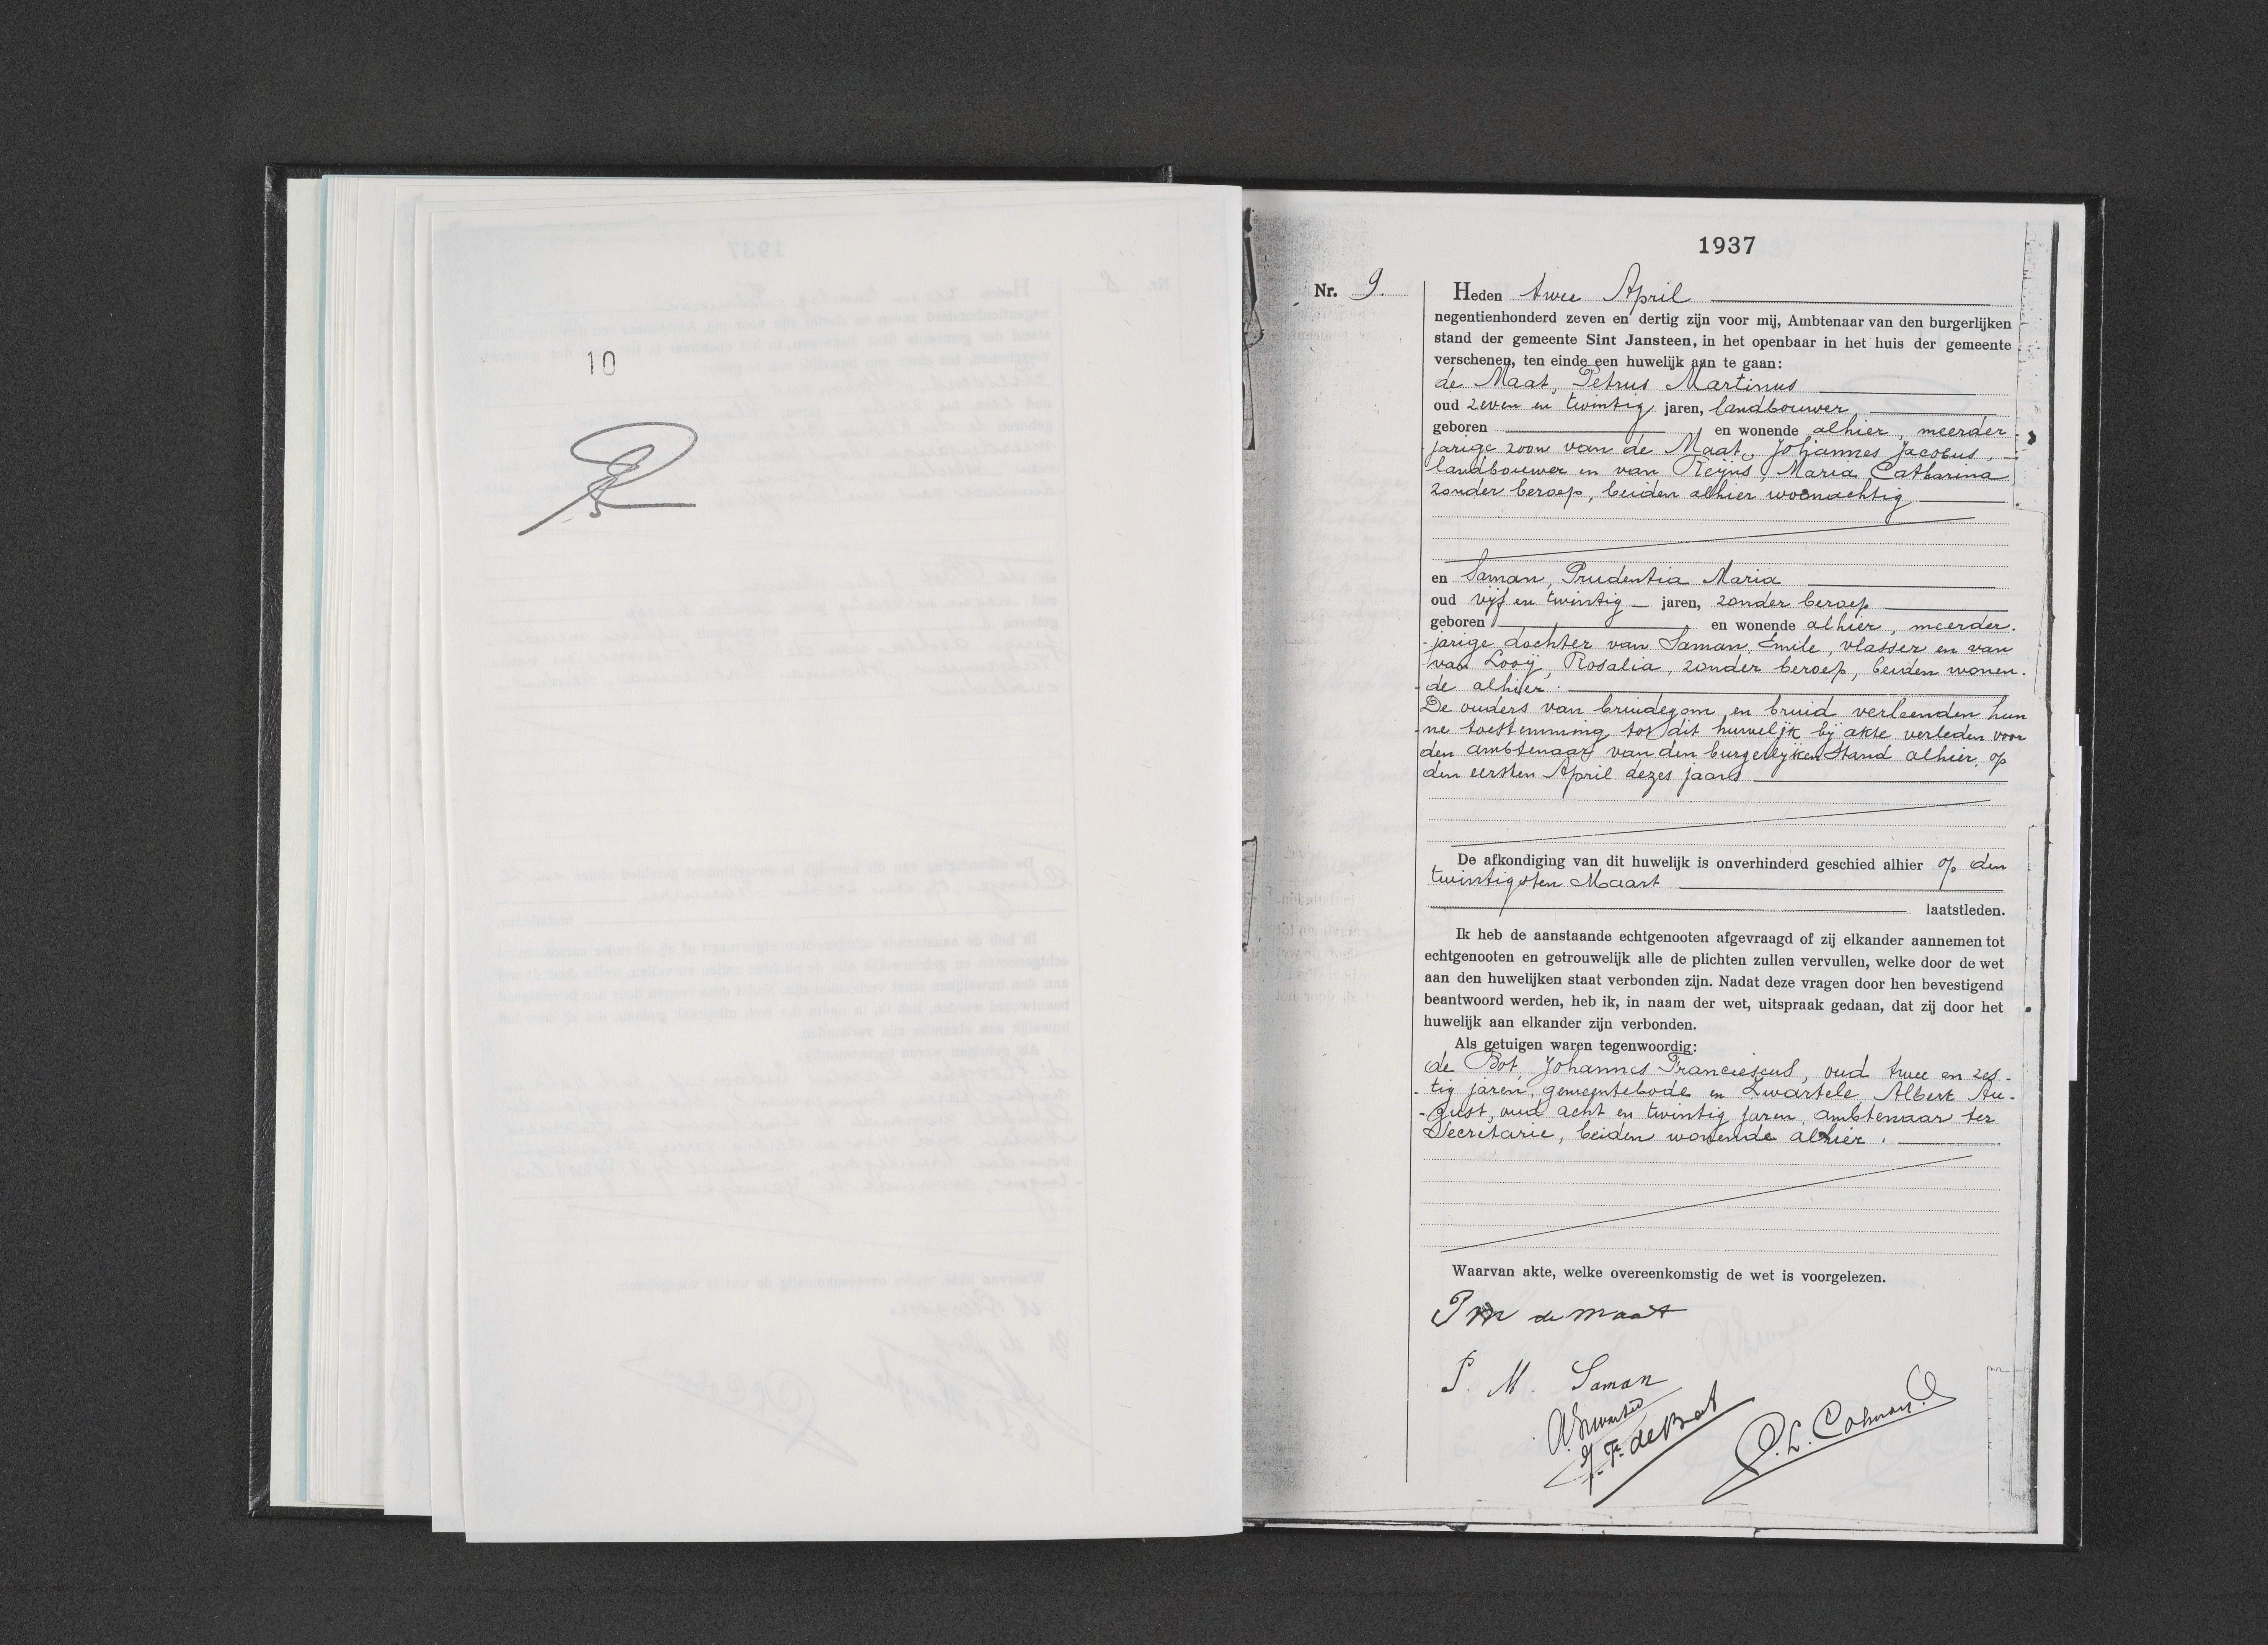 10
1937
Nr. 9.
Heden twee April
negentienhonderd zeven en dertig zijn voor mij, Ambtenaar van den burgerlijken
stand der gemeente Sint Jansteen, in het openbaar in het huis der gemeente
verschenen, ten einde een huwelijk aan te gaan:
de Maat, Petrus Martinus
oud zeven en twintig jaren, landbouwer
geboren en wonende alhier, meerder
jarige zoon van de Maat, Johannes Jacobus,
landbouwer en van Reijns, Maria Catharina
zonder beroep, beiden alhier woonachtig
en Saman, Prudentia Maria
oud vijf en twintig jaren, zonder beroep
geboren en wonende alhier, meerder.
-jarige dochter van Saman, Emile, vlasser en van
van Looij, Rosalia, zonder beroep, beiden wonen.
-de alhier.
De ouders van bruidegom en bruid verleenden hun
-ne toestemming tot dit huwelijk bij akte verleden voor
den ambtenaar van den burgerlijken Stand alhier, op
den eersten April dezes jaars
De afkondiging van dit huwelijk is onverhinderd geschied alhier op den
twintigsten Maart
laatstleden.
Ik heb de aanstaande echtgenooten afgevraagd of zij elkander aannemen tot
echtgenooten en getrouwelijk alle de plichten zullen vervullen, welke door de wet
aan den huwelijken staat verbonden zijn. Nadat deze vragen door hen bevestigend
beantwoord werden, heb ik, in naam der wet, uitspraak gedaan, dat zij door het
huwelijk aan elkander zijn verbonden.
Als getuigen waren tegenwoordig:
de Bot, Johannes Franciescus, oud twee en zes-
-tig jaren, gemeentebode en Zwartele, Albert Au-
-gust, oud acht en twintig jaren, ambtenaar ter
Secretarie, beiden wonende alhier.
Waarvan akte, welke overeenkomstig de wet is voorgelezen.
P M de Maat
P. M. Saman
J. F. de Bot